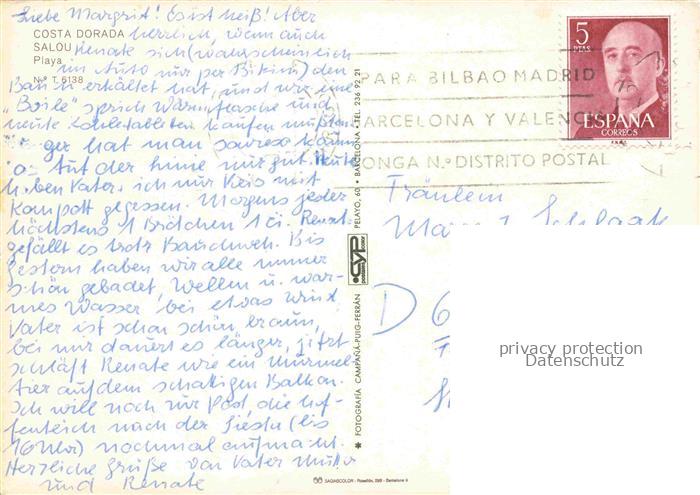 Liebe Margrit! Es ist heiß! Aber
COSTA DORADA
herrlich, wenn auch
SALOU
Playa
Renate sich (wahrscheinlich
Nº T. 6138
im Auto nur per Bikini) den
Bauch erkältet hat, und wir eine
"Boile" sprich Wärmflasche und
heute Kohletabletten kaufen mußten.
ger hat man sowieso kaum
Auf der hinne mir gut. Heute
haben Vater u. ich nur Reis mit
Kompott gegessen. Morgens jeder
höchstens 1 Brötchen 1 Ei. Renate
gefällt es trotz Bauchweh. Bis
gestern haben wir alle immer
schön gebadet, Wellen u. war-
mes Wasser bei etwas Wind
Vater ist schon schön braun,
bei mir dauert es länger, jetzt
schläft Renate wie ein Murmel-
tier auf dem schattigen Balkon.
Ich will noch zur Post, die hof-
fentlich nach der Siesta (bis
16 Uhr) nochmal aufmacht.
Herzliche Grüße von Vater Mutter
und Renate
PELAYO, 60 • BARCELONA • TEL. 236 92 21
CYP
✱ FOTOGRAFÍA CAMPAÑÁ-PUIG-FERRÁN
SAGASCOLOR
5
PTAS
ESPAÑA
CORREOS
PARA BILBAO MADRID
BARCELONA Y VALENCIA
PONGA N.º DISTRITO POSTAL
Fräulein
D 6
privacy protection
Datenschutz